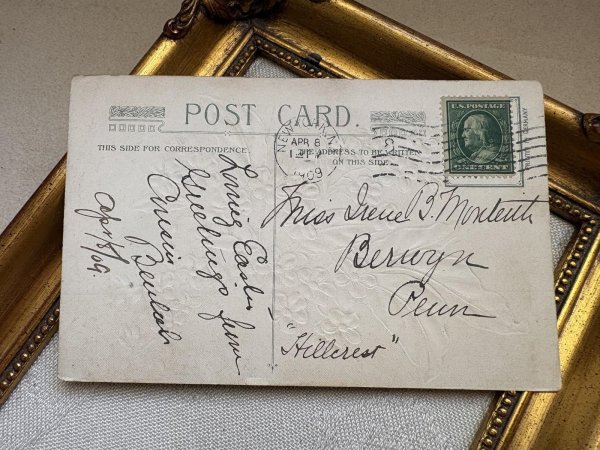 POST CARD.
THIS SIDE FOR CORRESPONDENCE.
THE ADDRESS TO BE WRITTEN
ON THIS SIDE.
NEW
APR 8
1909
U.S. POSTAGE
ONE CENT
GERMANY
Loving Easter
Greetings from
Cousin
Beulah
Apr 8/09.
Miss Irene B. Monteith
Berwyn
Penn
"Hillcrest"